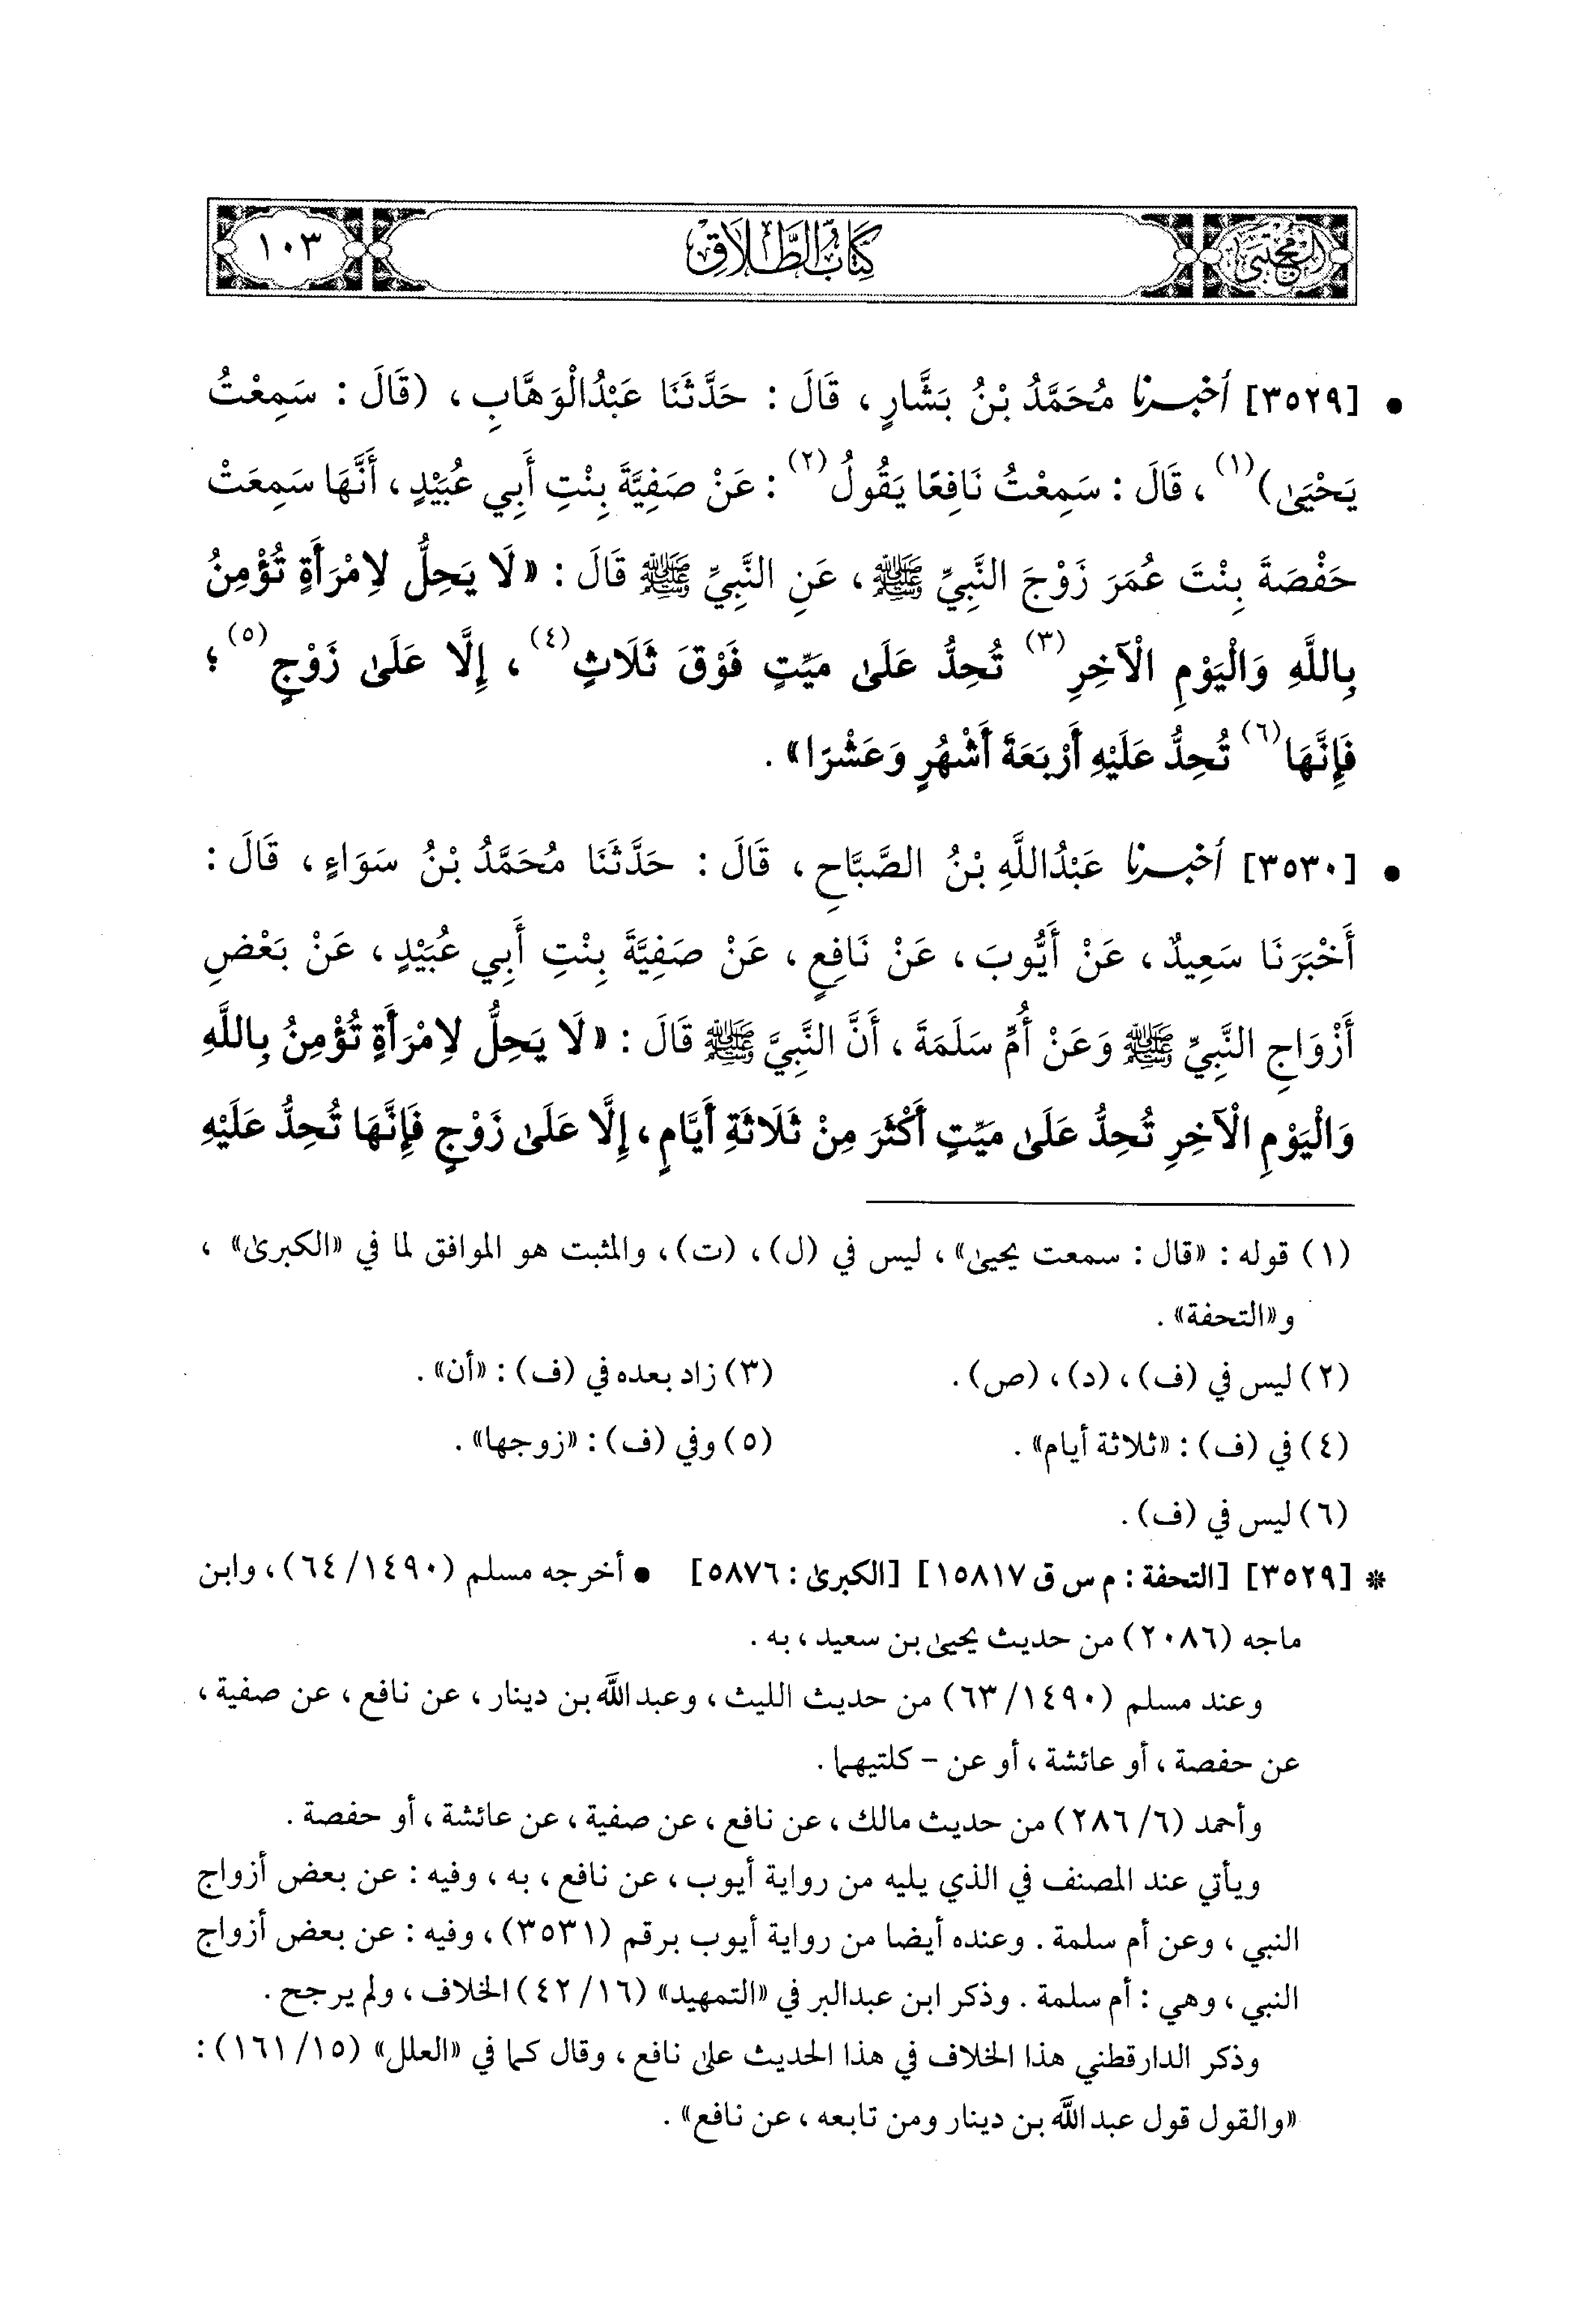 المجتبى
كتاب الطلاق
١٠٣
• [٣٥٢٩] أخبرنا مُحَمَّدُ بْنُ بَشَّارٍ ، قَالَ : حَدَّثَنَا عَبْدُالْوَهَّابِ ، (قَالَ : سَمِعْتُ
يَحْيَىٰ)(١) ، قَالَ : سَمِعْتُ نَافِعًا يَقُولُ(٢) : عَنْ صَفِيَّةَ بِنْتِ أَبِي عُبَيْدٍ ، أَنَّهَا سَمِعَتْ
حَفْصَةَ بِنْتَ عُمَرَ زَوْجَ النَّبِيِّ ﷺ ، عَنِ النَّبِيِّ ﷺ قَالَ : «لَا يَحِلُّ لِامْرَأَةٍ تُؤْمِنُ
بِاللَّهِ وَالْيَوْمِ الْآخِرِ(٣) تُحِدُّ عَلَىٰ مَيِّتٍ فَوْقَ ثَلَاثٍ(٤) ، إِلَّا عَلَىٰ زَوْجٍ(٥) ؛
فَإِنَّهَا(٦) تُحِدُّ عَلَيْهِ أَرْبَعَةَ أَشْهُرٍ وَعَشْرًا» .
• [٣٥٣٠] أخبرنا عَبْدُاللَّهِ بْنُ الصَّبَّاحِ ، قَالَ : حَدَّثَنَا مُحَمَّدُ بْنُ سَوَاءٍ ، قَالَ :
أَخْبَرَنَا سَعِيدٌ ، عَنْ أَيُّوبَ ، عَنْ نَافِعٍ ، عَنْ صَفِيَّةَ بِنْتِ أَبِي عُبَيْدٍ ، عَنْ بَعْضِ
أَزْوَاجِ النَّبِيِّ ﷺ وَعَنْ أُمِّ سَلَمَةَ ، أَنَّ النَّبِيَّ ﷺ قَالَ : «لَا يَحِلُّ لِامْرَأَةٍ تُؤْمِنُ بِاللَّهِ
وَالْيَوْمِ الْآخِرِ تُحِدُّ عَلَىٰ مَيِّتٍ أَكْثَرَ مِنْ ثَلَاثَةِ أَيَّامٍ ، إِلَّا عَلَىٰ زَوْجٍ فَإِنَّهَا تُحِدُّ عَلَيْهِ
(١) قوله : «قال : سمعت يحيىٰ» ، ليس في (ل) ، (ت) ، والمثبت هو الموافق لما في «الكبرىٰ» ،
و«التحفة» .
(٢) ليس في (ف) ، (د) ، (ص) . (٣) زاد بعده في (ف) : «أن» .
(٤) في (ف) : «ثلاثة أيام» . (٥) وفي (ف) : «زوجها» .
(٦) ليس في (ف) .
* [٣٥٢٩] [التحفة : م س ق ١٥٨١٧] [الكبرىٰ : ٥٨٧٦] • أخرجه مسلم (١٤٩٠/ ٦٤) ، وابن
ماجه (٢٠٨٦) من حديث يحيىٰ بن سعيد ، به .
وعند مسلم (١٤٩٠/ ٦٣) من حديث الليث ، وعبدالله بن دينار ، عن نافع ، عن صفية ،
عن حفصة ، أو عائشة ، أو عن - كلتيهما .
وأحمد (٦/ ٢٨٦) من حديث مالك ، عن نافع ، عن صفية ، عن عائشة ، أو حفصة .
ويأتي عند المصنف في الذي يليه من رواية أيوب ، عن نافع ، به ، وفيه : عن بعض أزواج
النبي ، وعن أم سلمة . وعنده أيضا من رواية أيوب برقم (٣٥٣١) ، وفيه : عن بعض أزواج
النبي ، وهي : أم سلمة . وذكر ابن عبدالبر في «التمهيد» (١٦/ ٤٢) الخلاف ، ولم يرجح .
وذكر الدارقطني هذا الخلاف في هذا الحديث علىٰ نافع ، وقال كما في «العلل» (١٥/ ١٦١) :
«والقول قول عبدالله بن دينار ومن تابعه ، عن نافع» .